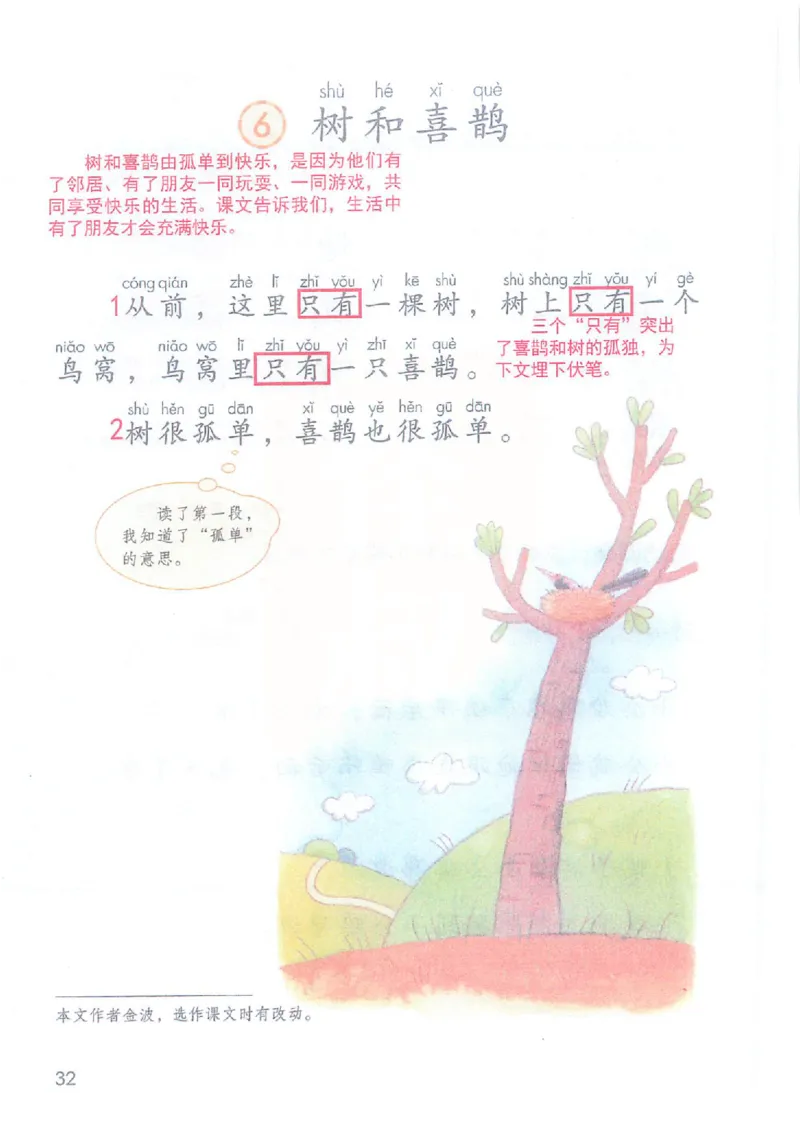 shù hé xǐ què
6 树和喜鹊
树和喜鹊由孤单到快乐，是因为他们有
了邻居、有了朋友一同玩耍、一同游戏，共
同享受快乐的生活。课文告诉我们，生活中
有了朋友才会充满快乐。
cóng qián zhè lǐ zhǐ yǒu yì kē shù shù shàng zhǐ yǒu yí gè
1从前，这里只有一棵树，树上只有一个
三个“只有”突出
了喜鹊和树的孤独，为
下文埋下伏笔。
niǎo wō niǎo wō lǐ zhǐ yǒu yì zhī xǐ què
鸟窝，鸟窝里只有一只喜鹊。
shù hěn gū dān xǐ què yě hěn gū dān
2树很孤单，喜鹊也很孤单。
读了第一段，
我知道了“孤单”
的意思。
本文作者金波，选作课文时有改动。
32